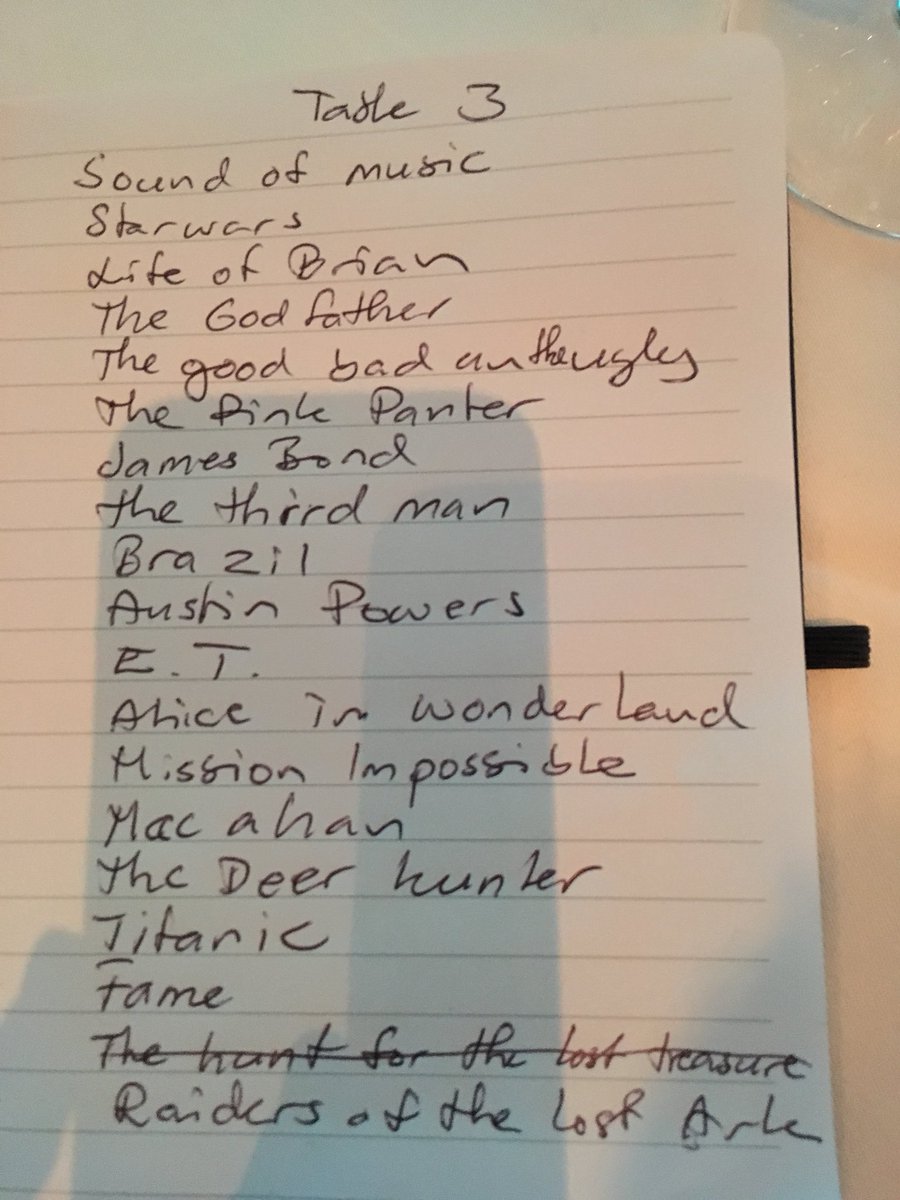 Table 3
Sound of music
Starwars
Life of Brian
The Godfather
The good bad an the ugly
The Pink Panter
James Bond
the third man
Brazil
Austin Powers
E.T.
Alice in wonderland
Mission Impossible
Mac ahan
the Deer hunter
Titanic
Fame
The hunt for the lost treasure
Raiders of the Lost Ark